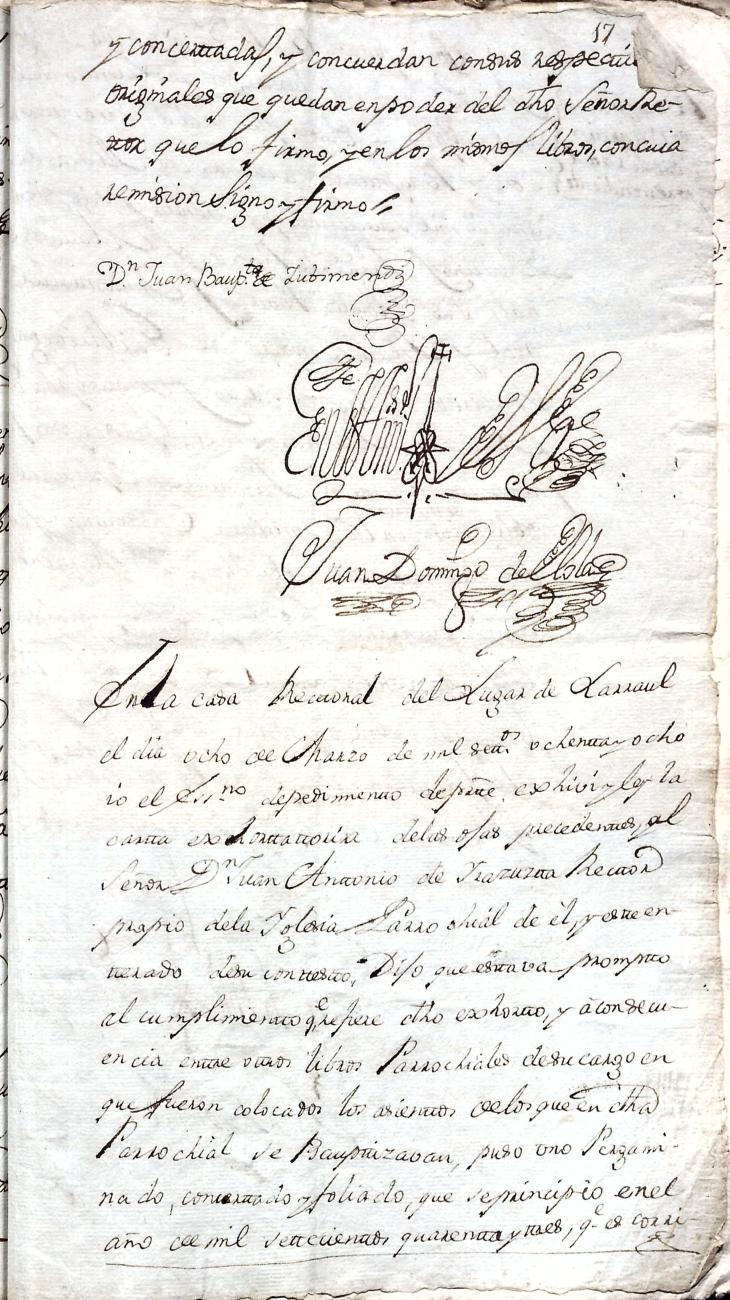 17
y concertadas, y concuerdan consus respecti
originales que quedan enpoder del dho Señor Re-
ttor que lo firmo, y en los mismos libros, concuia
remision signo y firmo
Dn Juan Bapta de Zubimendi
Juan Domingo de
En la casa Rectoral del Lugar de Larraul
el dia ocho de Marzo de mil settos ochenta y ocho
io el Essno depedimento de parte, exhivi y ley la
cartta exhorttattoria delas ojas precedentes, al
Señor Dn Juan Antonio de Irazuzta Rector
propio dela Iglesia Parrochial de él, y este en-
terado desu contesto, Dijo que estava prompto
al cumplimiento qe refiere dho exhorto, y á consecu-
encia entre otros libros Parrochiales desu cargo en
que fueron colocados los asientos delos que en dha
Parrochial se Bauptizavan, puso uno Pergami-
nado, concertado y foliado, que se principio en el
año de mil settecientos quarenta y tres, qe es corri-